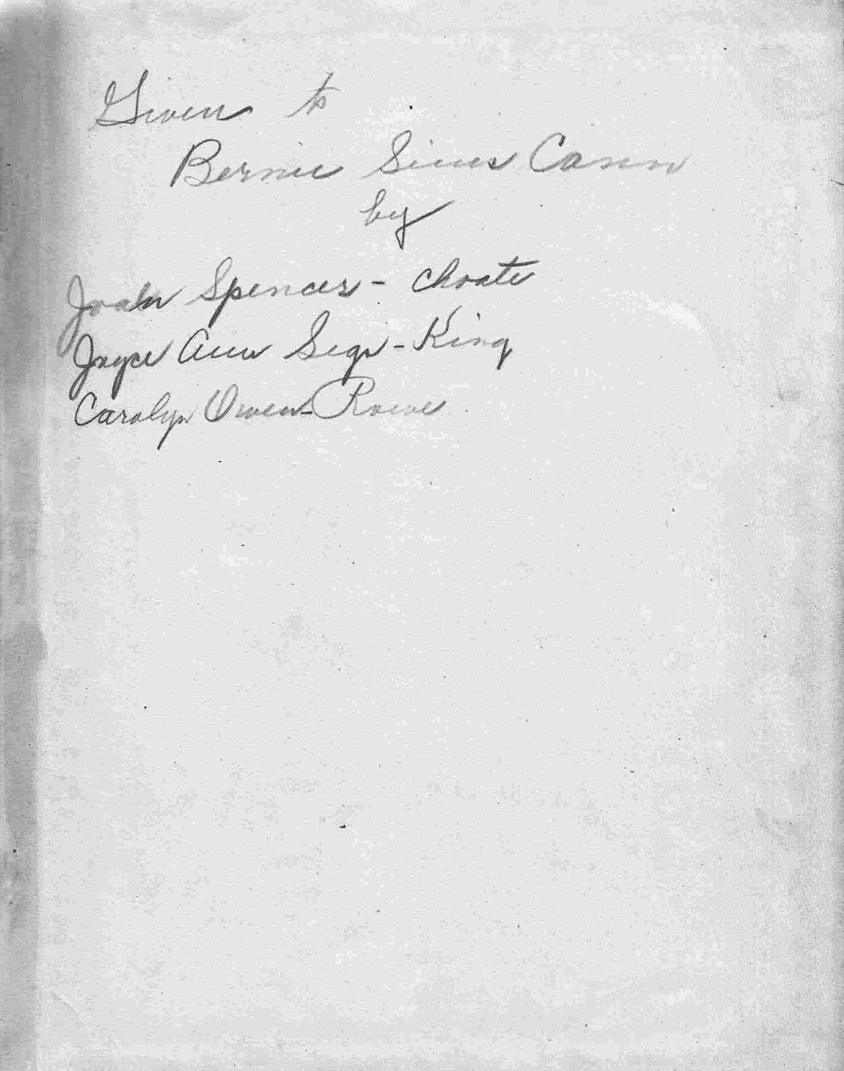 Given to
Bernice Sims Cann
by
Joan Spencer - Choate
Joyce Ann Sego - King
Carolyn Owen - Rowe